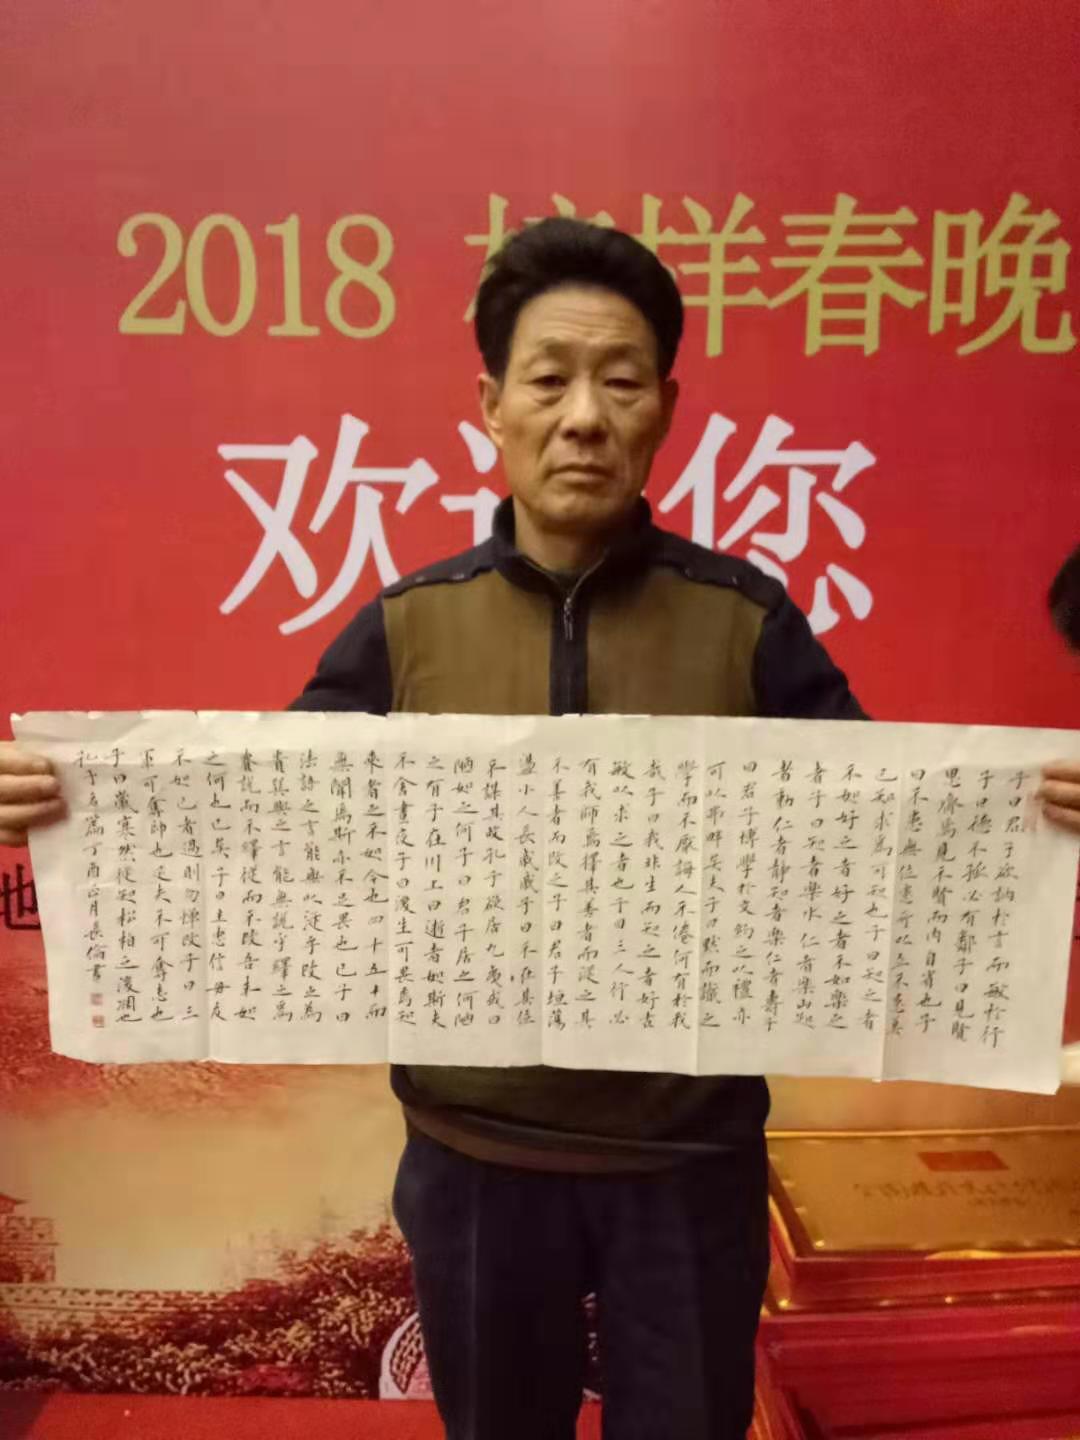 2018 榜样春晚
欢迎您
地
子曰君子欲訥於言而敏於行
子曰德不孤必有鄰子曰見賢
思齊焉見不賢而內自省也子
曰不患無位患所以立不患莫
己知求為可知也子曰知之者
不如好之者好之者不如樂之
者子曰知者樂水仁者樂山知
者動仁者靜知者樂仁者壽子
曰君子博學於文約之以禮亦
可以弗畔矣夫子曰默而識之
學而不厭誨人不倦何有於我
哉子曰我非生而知之者好古
敏以求之者也子曰三人行必
有我師焉擇其善者而從之其
不善者而改之子曰君子坦蕩
盪小人長戚戚子曰不在其位
不謀其政孔子欲居九夷或曰
陋如之何子曰君子居之何陋
之有子在川上曰逝者如斯夫
不舍晝夜子曰後生可畏焉知
來者之不如今也四十五十而
無聞焉斯亦不足畏也已子曰
法語之言能無以從乎改之為
貴巽與之言能無說乎繹之為
貴說而不繹從而不改吾末如
之何也已矣子曰主忠信毋友
不如己者過則勿憚改子曰三
軍可奪帥也匹夫不可奪志也
子曰歲寒然後知松柏之後凋也
孔子名篇丁酉正月長倫書